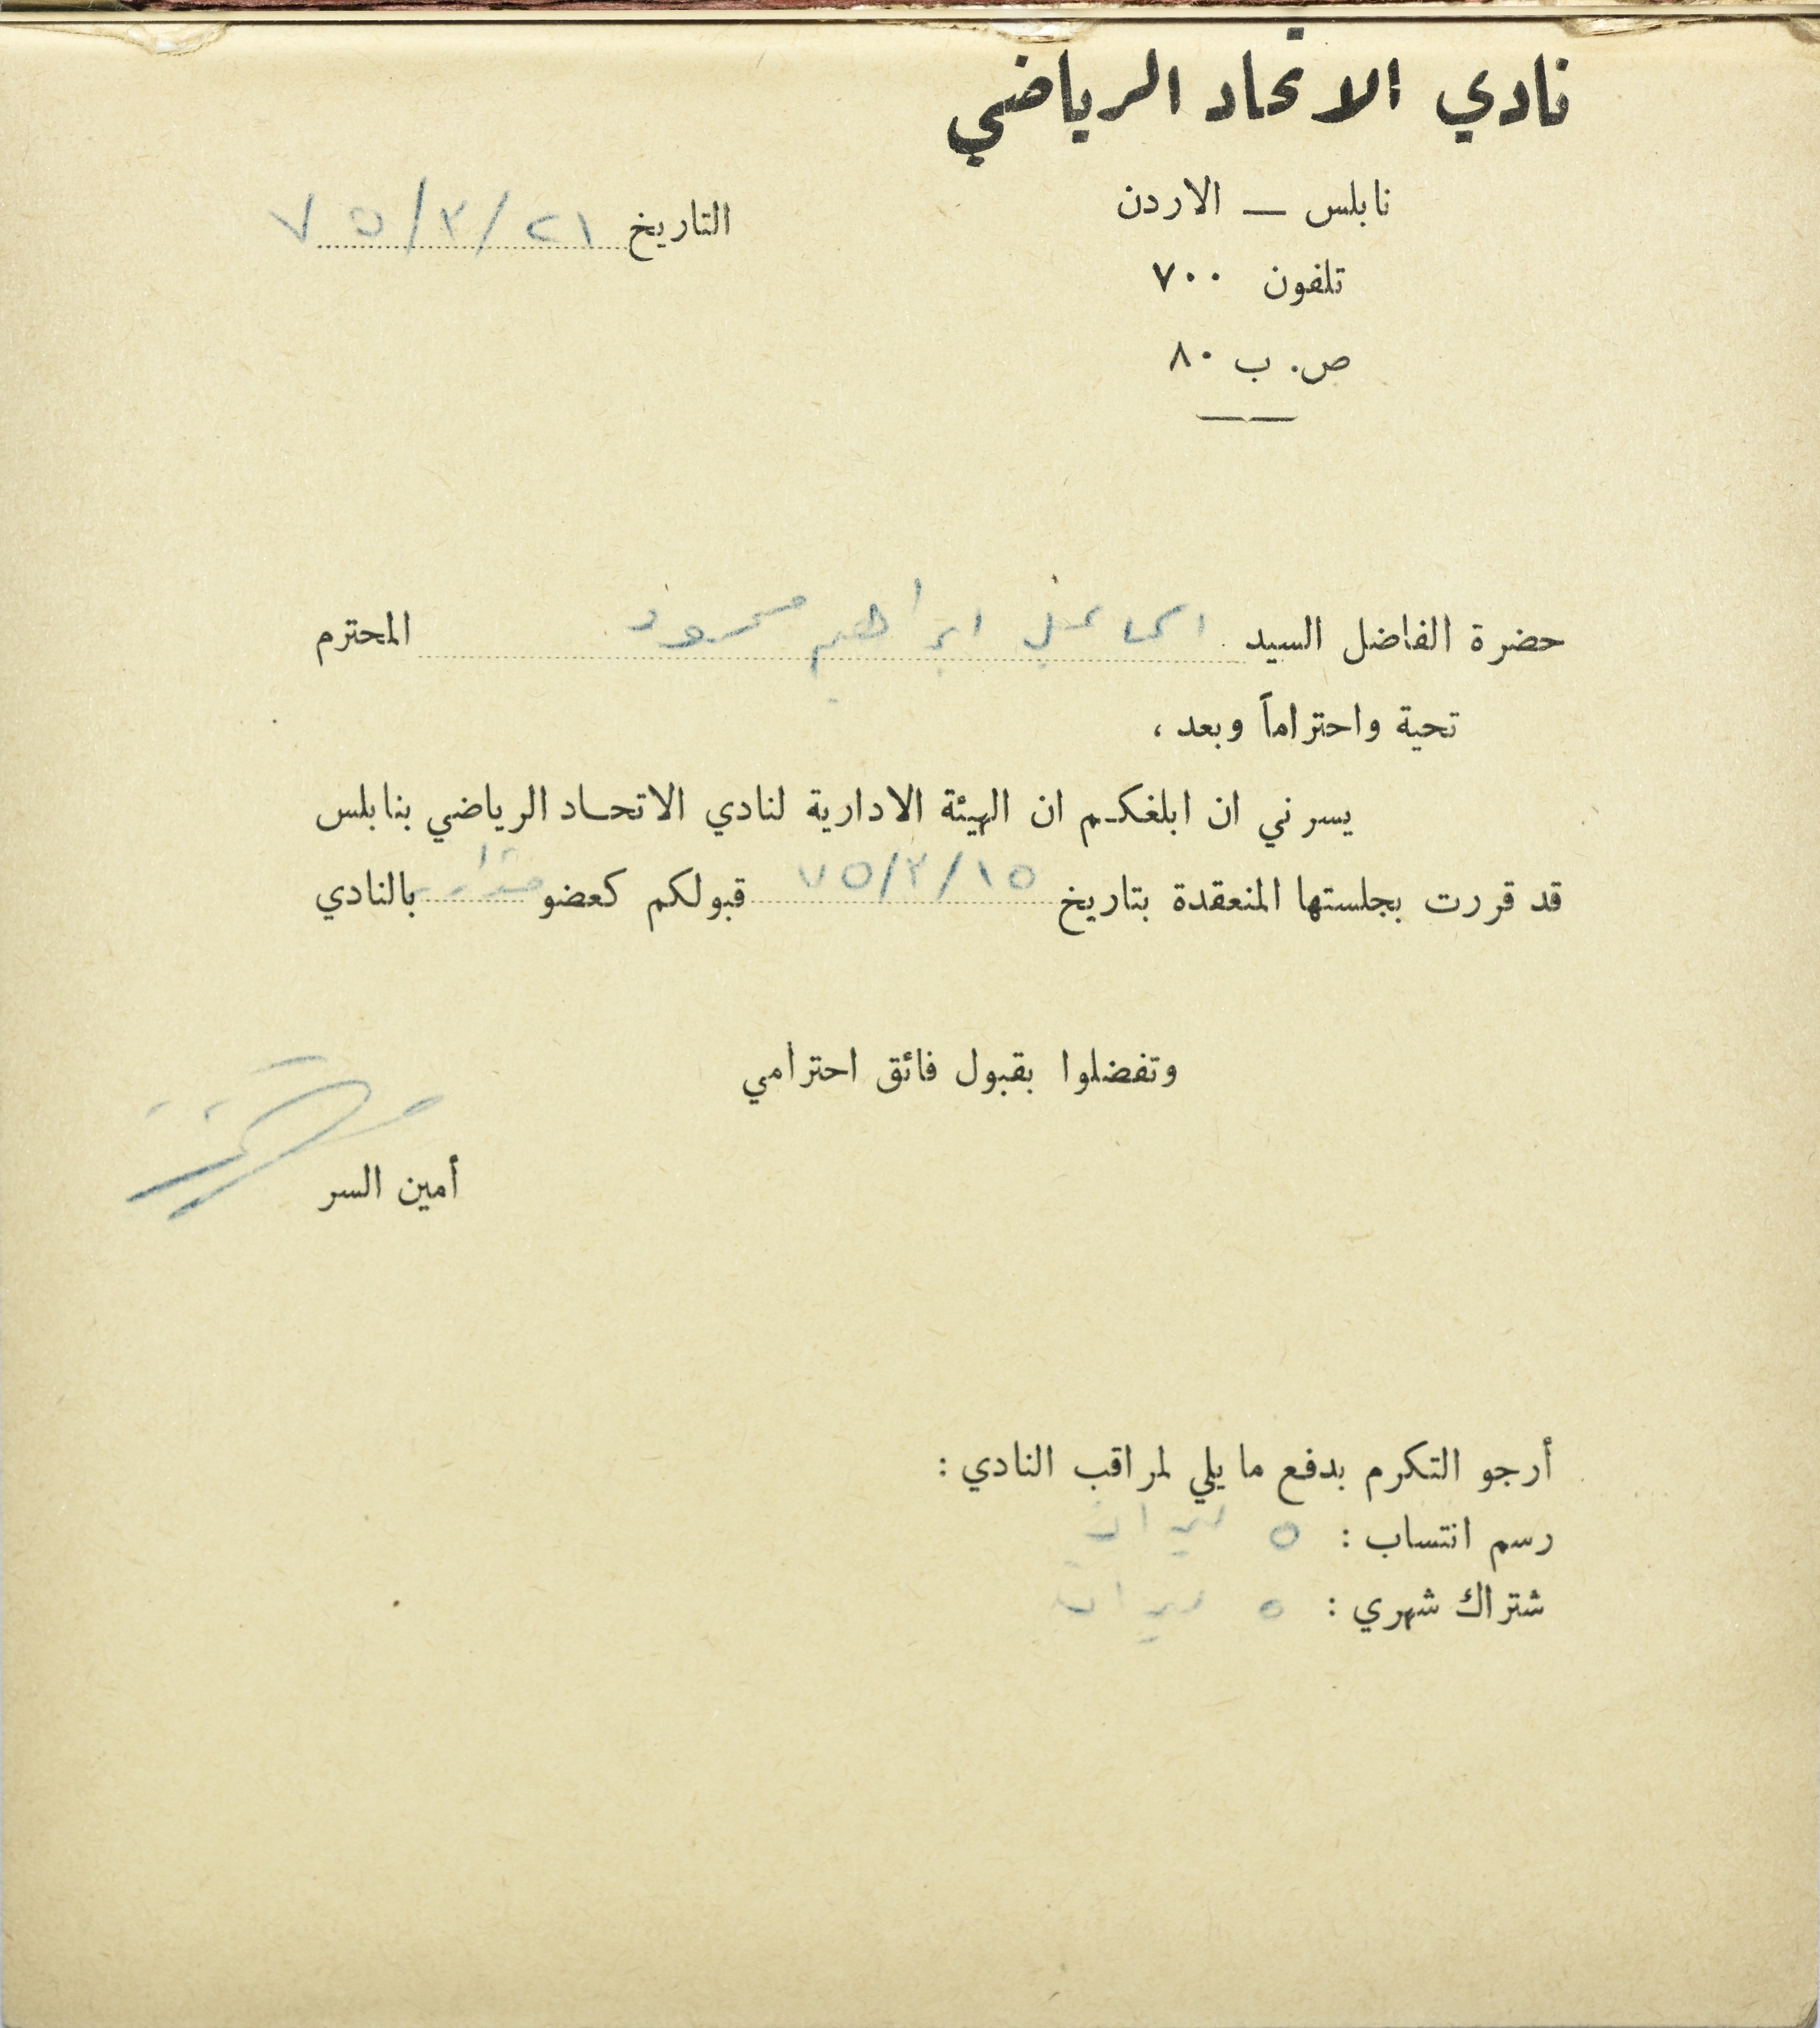 نادي الاتحاد الرياضي
نابلس — الاردن
تلفون ٧٠٠
ص. ب ٨٠
التاريخ ٢١/٢/٧٥
حضرة الفاضل السيد اسماعيل ابراهيم محمود المحترم
تحية واحتراماً وبعد ،
يسرني ان ابلغكم ان الهيئة الادارية لنادي الاتحاد الرياضي بنابلس
قد قررت بجلستها المنعقدة بتاريخ ١٥/٢/٧٥ قبولكم كعضو بالنادي
وتفضلوا بقبول فائق احترامي
أمين السر
أرجو التكرم بدفع ما يلي لمراقب النادي :
رسم انتساب : ٥ ليرات
شتراك شهري : ٥ ليرات